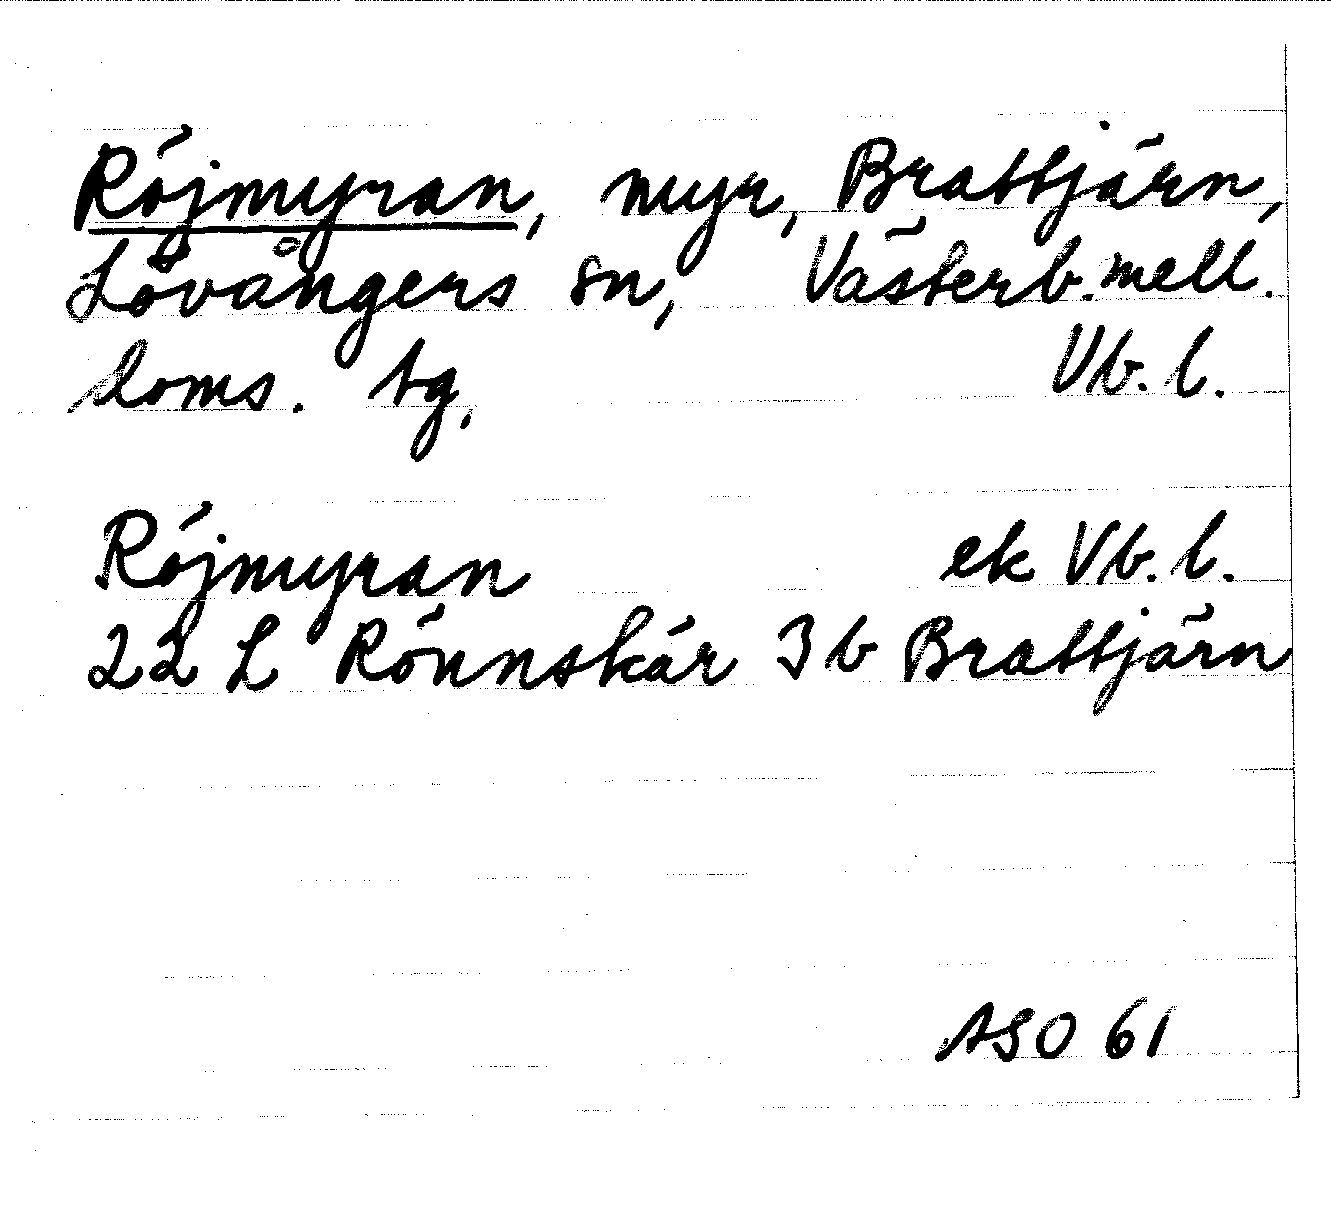 Röjmyran, myr, Brattjärn,
Lövångers sn, Västerb. mell.
doms. tg, Vb. l.
Röjmyran ek Vb. l.
22 L Rönnskär 3 b Brattjärn
ASO 61